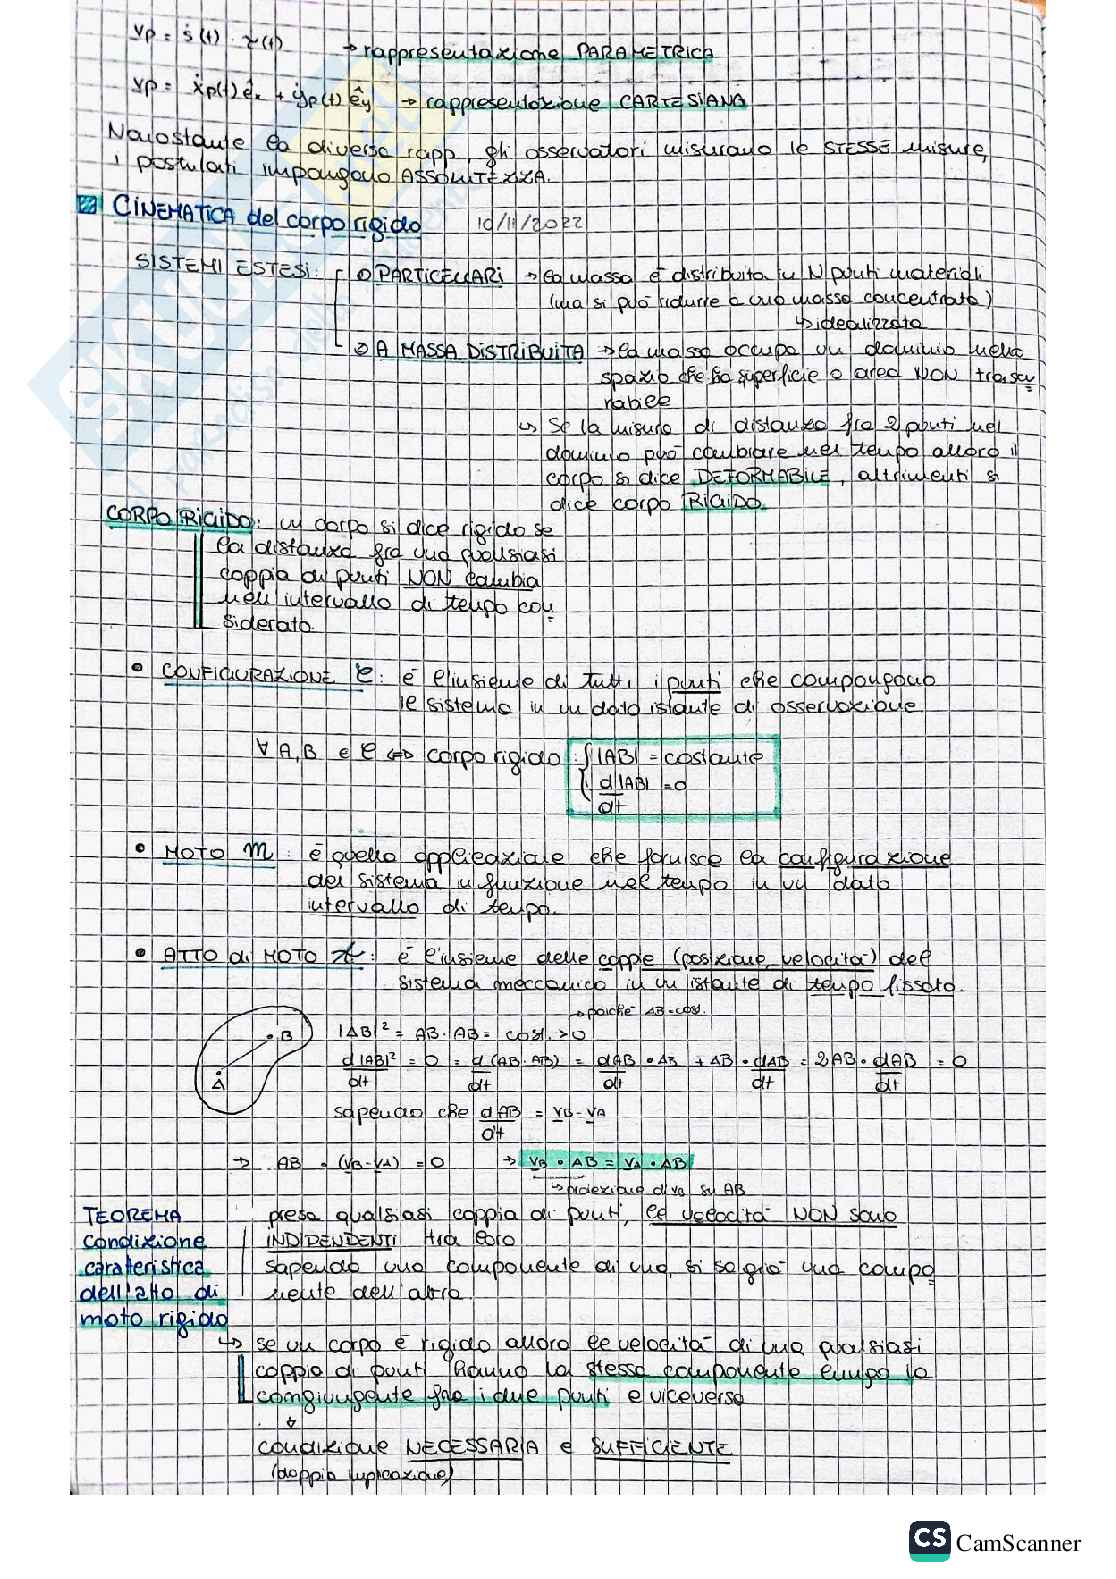 vp = ṡ(t) · τ(t) → rappresentazione PARAMETRICA
vp = ẋp(t) êx + ẏp(t) êy → rappresentazione CARTESIANA
Nonostante la diversa rapp, gli osservatori misurano le STESSE misure,
i postulati impongono ASSOLUTEZZA.
CINEMATICA del corpo rigido 10/11/2022
SISTEMI ESTESI: ① PARTICELLARI → la massa è distribuita in N punti materiali
(ma si può ridurre a una massa concentrata)
↳ idealizzata
② A MASSA DISTRIBUITA → la massa occupa un dominio nello
spazio che ha superficie o area NON trascu
rabile
↳ Se la misura di distanza fra 2 punti nel
dominio può cambiare nel tempo allora il
corpo si dice DEFORMABILE, altrimenti si
dice corpo RIGIDO.
CORPO RIGIDO: un corpo si dice rigido se
la distanza fra una qualsiasi
coppia di punti NON cambia
nell'intervallo di tempo con
siderato.
• CONFIGURAZIONE C: è l'insieme di tutti i punti che compongono
il sistema in un dato istante di osservazione
∀ A,B ∈ C ↔ corpo rigido: { |AB| = costante
d|AB|/dt = 0
• MOTO M: è quella applicazione che fornisce la configurazione
del sistema in funzione nel tempo in un dato
intervallo di tempo.
• ATTO di MOTO A: è l'insieme delle coppie (posizione, velocità) del
sistema meccanico in un istante di tempo fissato.
→ poiché AB = cost.
B
A
|AB|² = AB · AB = cost. > 0
d|AB|²/dt = 0 = d(AB · AB)/dt = dAB/dt · AB + AB · dAB/dt = 2AB · dAB/dt = 0
sapendo che dAB/dt = vB - vA
→ AB · (vB - vA) = 0 → vB · AB = vA · AB
→ proiezione di vB su AB
TEOREMA
condizione
carateristica
dell'atto di
moto rigido
presa qualsiasi coppia di punti, le velocità NON sono
INDIPENDENTI tra loro
sapendo una componente di una, si sa già una compo
nente dell'altra.
↳ se un corpo è rigido allora le velocità di una qualsiasi
coppia di punti hanno la stessa componente lungo la
congiungente fra i due punti e viceversa
↓
condizione NECESSARIA e SUFFICIENTE
(doppia implicazione)
CS CamScanner